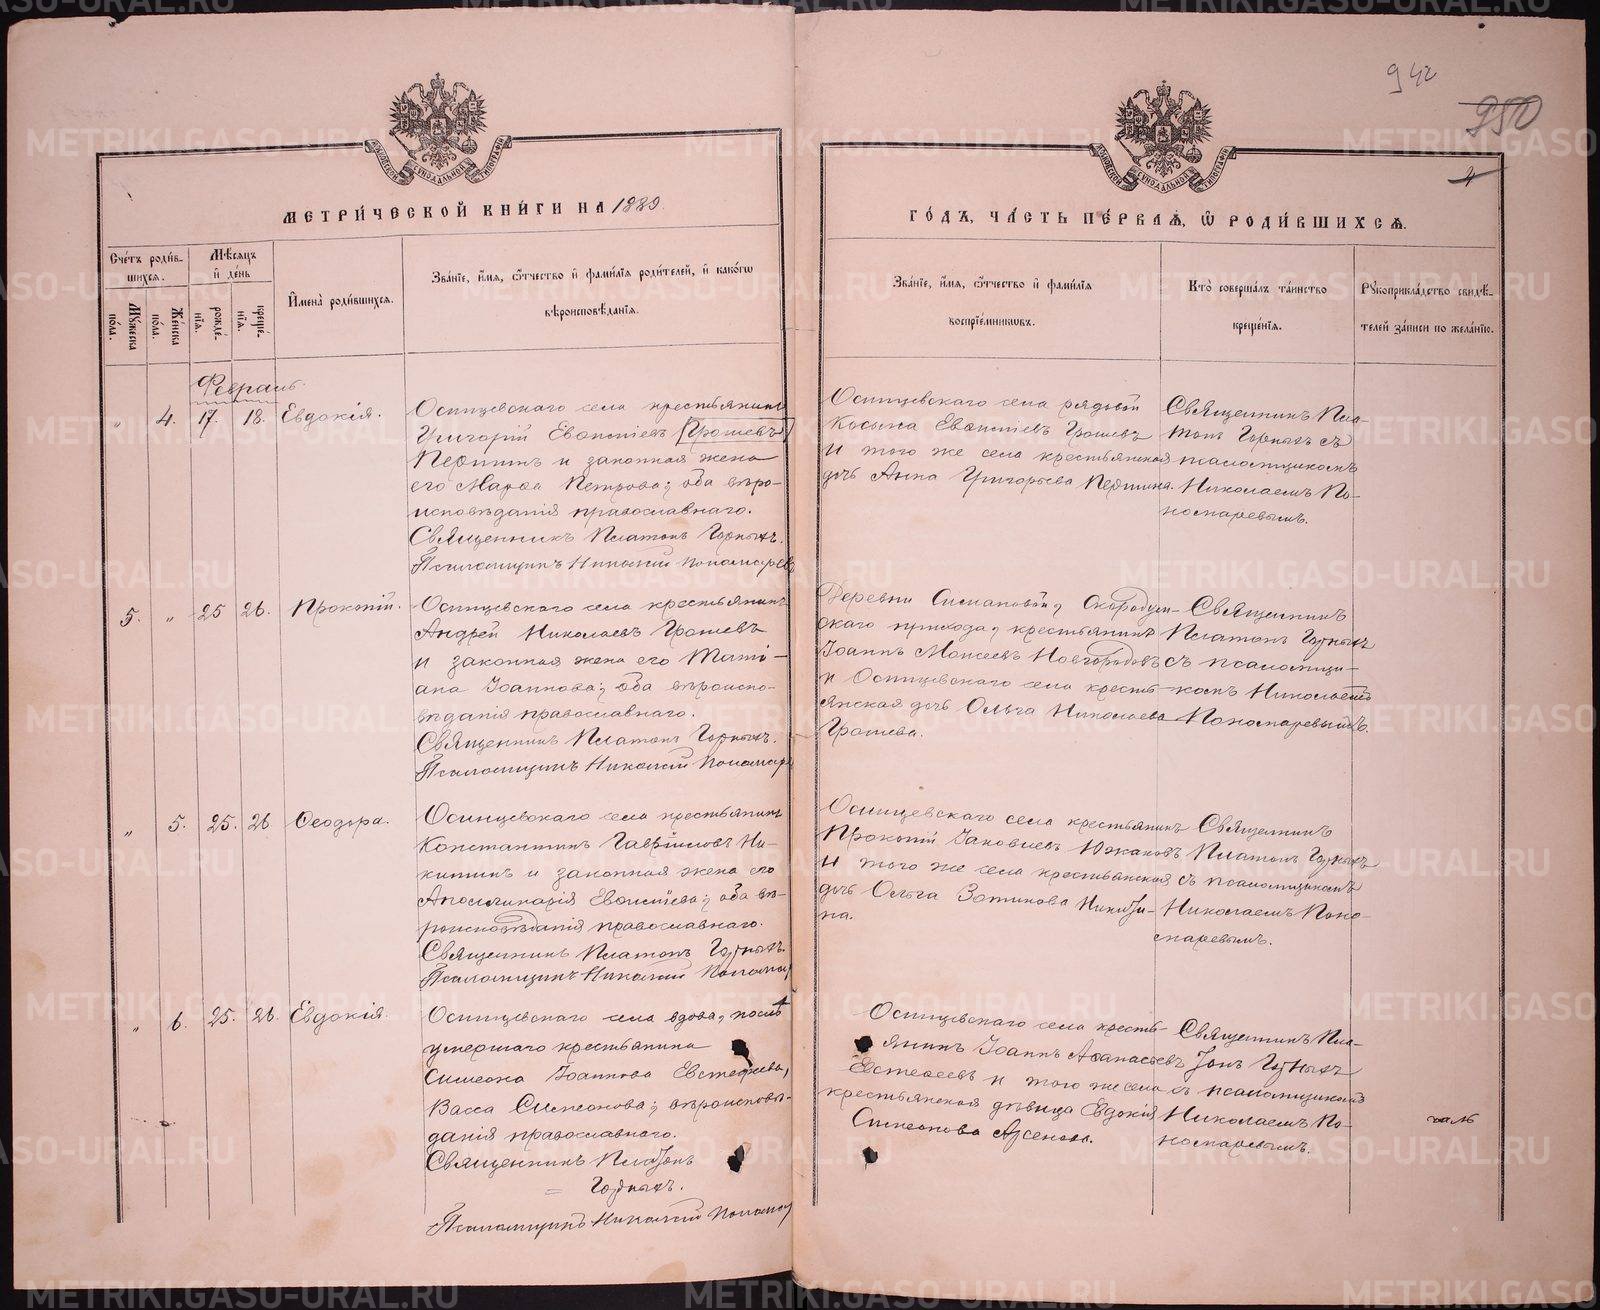 942
950
4
МЕТРИ́ЧЕСКОЙ КНИ́ГИ НА 1889
ГО́ДЪ, ЧА́СТЬ ПЕ́РВАѦ, Ѡ РОДИ́ВШИХСѦ.
Сче́тъ роди́в-
шихся.
Мѣ́сяцъ
и де́нь
Му́жеска по́ла.
Же́нска по́ла.
рожде́-
нїя.
креще́-
нїя.
И́мена роди́вшихся.
Зва́нїе, и́мя, ѻ́тчество и фами́лїя роди́телей, и како́гѡ
вѣроисповѣ́данїя.
Зва́нїе, и́мя, ѻ́тчество и фами́лїя
воспрїе́мниковъ.
Кто̀ соверша́лъ та́инство
креще́нїя.
Рукоприкла́дство свидѣ́-
телей за́писи по жела́нїю.
Февраль
„ 4. 17. 18. Евдокія.
Осинцевскаго села крестьянинъ
Григорій Евѳиміевъ [Грошевъ]
Першинъ и законная жена
его Марѳа Петрова; оба вѣро-
исповѣданія православнаго.
Священникъ Платонъ Горныхъ.
Псаломщикъ Николай Пономарев
Осинцевскаго села рядовой
Косьма Евѳиміевъ Грошевъ
и того же села крестьянская
дочь Анна Григорьева Першина.
Священникъ Пла-
тонъ Горныхъ съ
псаломщикомъ
Николаемъ По-
номаревымъ.
5. „ 25 26. Прокопій.
Осинцевскаго села крестьянинъ
Андрей Николаевъ Грошевъ
и законная жена его Тати-
ана Іоаннова; оба вѣроиспо-
вѣданія православнаго.
Священникъ Платонъ Горныхъ.
Псаломщикъ Николай Пономар
Деревни Симановой, Скородум-
скаго прихода, крестьянинъ
Іоаннъ Моисеевъ Новгородовъ
и Осинцевскаго села кресть-
янская дочь Ольга Николаева
Грошева.
Священникъ
Платонъ Горныхъ
съ псаломщи-
комъ Николаемъ
Пономаревымъ.
„ 5. 25. 26. Ѳеодора.
Осинцевскаго села крестьянинъ
Константинъ Гавріиловъ Ни-
китинъ и законная жена его
Аполлинарія Евѳиміева; оба вѣ-
роисповѣданія православнаго.
Священникъ Платонъ Горныхъ.
Псаломщикъ Николай Понома
Осинцевскаго села крестьянинъ
Прокопій Іаковлевъ Южаковъ
и того же села крестьянская
дочь Ольга Зотикова Никити-
на.
Священникъ
Платонъ Горныхъ
съ псаломщикомъ
Николаемъ Поно-
маревымъ.
„ 6. 25. 26. Евдокія.
Осинцевскаго села вдова, послѣ
умершаго крестьянина
Симеона Іоаннова Евстефеева,
Васса Симеонова; вѣроисповѣ-
данія православнаго.
Священникъ Платонъ
= Горныхъ.
Псаломщикъ Николай Пономар
Осинцевскаго села кресть-
янинъ Іоаннъ Аѳанасьевъ
Евстефеевъ и того же села
крестьянская дѣвица Евдокія
Симеонова Арсенова.
Священникъ Пла-
тонъ Горныхъ
съ псаломщикомъ
Николаемъ По-
номаревымъ.
METRIKI.GASO-URAL.RU